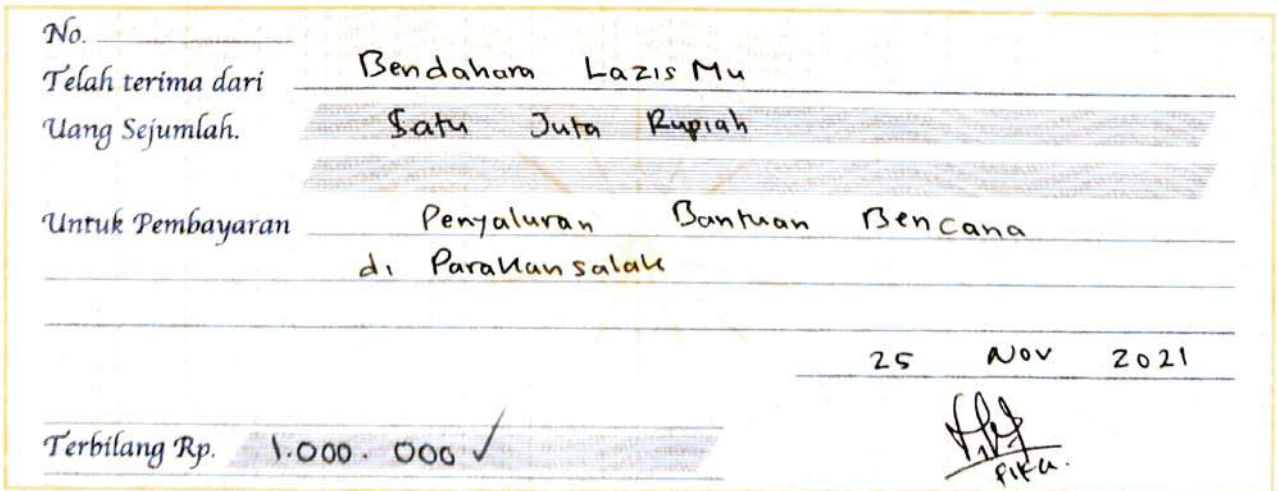 No.
Telah terima dari Bendahara LazisMu
Uang Sejumlah. Satu Juta Rupiah
Untuk Pembayaran Penyaluran Bantuan Bencana
di Parakansalak
25 Nov 2021
Terbilang Rp. 1.000.000
Fika.